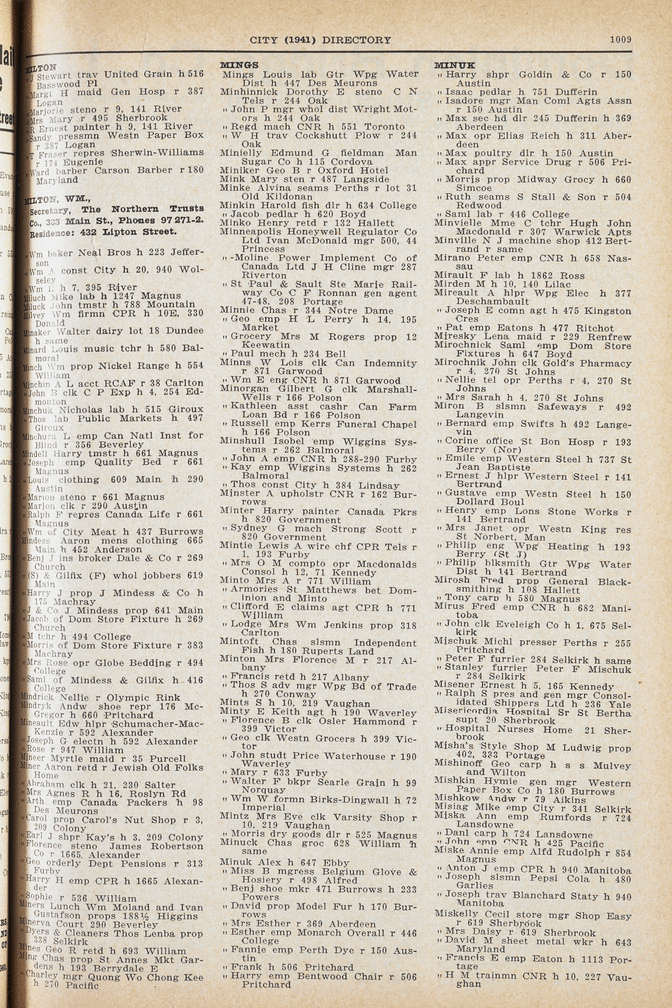 CITY (1941) DIRECTORY
1009
MILTON
Stewart trav United Grain h 516
Basswood Pl
Margt H maid Gen Hosp r 387
Logan
Marjorie steno r 9, 141 River
Mrs Mary r 495 Sherbrook
R Ernest painter h 9, 141 River
Sandy pressmn Westn Paper Box
r 387 Logan
T Fraser repres Sherwin-Williams
r 174 Eugenie
Ward barber Carson Barber r 180
Maryland
MILTON, WM.,
Secretary, The Northern Trusts
Co., 333 Main St., Phones 97 271-2.
Residence: 432 Lipton Street.
Wm baker Neal Bros h 223 Jeffer-
son
Wm A const City h 20, 940 Wol-
seley
Wm L h 7, 395 River
Miluch Mike lab h 1247 Magnus
Miluck John tmstr h 788 Mountain
Milvey Wm firmn CPR h 10E, 330
Donald
Minaker Walter dairy lot 18 Dundee
h same
Minard Louis music tchr h 580 Bal-
moral
Minch Wm prop Nickel Range h 554
William
Minchin A L acct RCAF r 38 Carlton
John B clk C P Exp h 4, 254 Ed-
monton
Minchuk Nicholas lab h 515 Giroux
Thos lab Public Markets h 497
Giroux
Minchura L emp Can Natl Inst for
Blind r 356 Beverley
Mindell Harry tmstr h 661 Magnus
Joseph emp Quality Bed r 661
Magnus
Louis clothing 609 Main h 290
Austin
Maroun steno r 661 Magnus
Marion clk r 290 Austin
Ralph F repres Canada Life r 661
Magnus
Wm of City Meat h 437 Burrows
Mindess Aaron mens clothing 665
Main h 452 Anderson
Benj J ins broker Dale & Co r 269
Church
(S) & Gilfix (F) whol jobbers 619
Main
Harry J prop J Mindess & Co h
175 Machray
J & Co J Mindess prop 641 Main
Jacob of Dom Store Fixture h 269
Church
M tchr h 494 College
Morris of Dom Store Fixture r 383
Machray
Mrs Rose opr Globe Bedding r 494
College
Saml of Mindess & Gilfix h 416
College
Mindrick Nellie r Olympic Rink
Mindryk Andw shoe repr 176 Mc-
Gregor h 660 Pritchard
Mineault Edw hlpr Schumacher-Mac-
Kenzie r 592 Alexander
Joseph G electn h 592 Alexander
Rose r 947 William
Mineer Myrtle maid r 35 Purcell
Miner Aaron retd r Jewish Old Folks
Home
Abraham clk h 21, 230 Salter
Mrs Agnes R h 16, Roslyn Rd
Arth emp Canada Packers h 98
Des Meurons
Carol prop Carol's Nut Shop r 3,
209 Colony
Earl J shpr Kay's h 3, 209 Colony
Florence steno James Robertson
Co r 1665, Alexander
Geo orderly Dept Pensions r 313
Furby
Harry H emp CPR h 1665 Alexan-
der
Sophie r 536 William
Miners Lunch Wm Moland and Ivan
Gustafson props 188½ Higgins
Minerva Court 290 Beverley
Dyers & Cleaners Thos Lenba prop
338 Selkirk
Mines Geo R retd h 693 William
Ming Chas prop St Annes Mkt Gar-
dens h 193 Berrydale E
Charley mgr Quong Wo Chong Kee
h 270 Pacific
MINGS
Mings Louis lab Gtr Wpg Water
Dist h 447 Des Meurons
Minhinnick Dorothy E steno C N
Tels r 244 Oak
" John P mgr whol dist Wright Mot-
ors h 244 Oak
" Regd mach CNR h 551 Toronto
" W H trav Cockshutt Plow r 244
Oak
Minielly Edmund G fieldman Man
Sugar Co h 115 Cordova
Miniker Geo B r Oxford Hotel
Mink Mary sten r 487 Langside
Minke Alvina seams Perths r lot 31
Old Kildonan
Minkin Harold fish dlr h 634 College
" Jacob pedlar h 620 Boyd
Minko Henry retd r 132 Hallett
Minneapolis Honeywell Regulator Co
Ltd Ivan McDonald mgr 500, 44
Princess
" -Moline Power Implement Co of
Canada Ltd J H Cline mgr 287
Riverton
" St Paul & Sault Ste Marie Rail-
way Co C F Ronnan gen agent
47-48, 208 Portage
Minnie Chas r 344 Notre Dame
" Geo emp H L Perry h 14, 195
Market
" Grocery Mrs M Rogers prop 12
Keewatin
" Paul mech h 234 Bell
Minns W Lois clk Can Indemnity
r 871 Garwood
" Wm E eng CNR h 871 Garwood
Minorgan Gilbert G clk Marshall-
Wells r 166 Polson
" Kathleen asst cashr Can Farm
Loan Bd r 166 Polson
" Russell emp Kerrs Funeral Chapel
h 166 Polson
Minshull Isobel emp Wiggins Sys-
tems r 262 Balmoral
" John A emp CNR h 288-290 Furby
" Kay emp Wiggins Systems h 262
Balmoral
" Thos const City h 384 Lindsay
Minster A upholstr CNR r 162 Bur-
rows
Minter Harry painter Canada Pkrs
h 820 Government
" Sydney G mach Strong Scott r
820 Government
Mintie Lewis A wire chf CPR Tels r
1, 193 Furby
" Mrs O M compto opr Macdonalds
Consol h 12, 71 Kennedy
Minto Mrs A r 771 William
" Armories St Matthews bet Dom-
inion and Minto
" Clifford E claims agt CPR h 771
William
" Lodge Mrs Wm Jenkins prop 318
Carlton
Mintoft Chas slsmn Independent
Fish h 180 Ruperts Land
Minton Mrs Florence M r 217 Al-
bany
" Francis retd h 217 Albany
" Thos S adv mgr Wpg Bd of Trade
h 270 Conway
Mints S h 10, 219 Vaughan
Minty E Keith agt h 190 Waverley
" Florence B clk Osler Hammond r
399 Victor
" Geo clk Westn Grocers h 399 Vic-
tor
" John studt Price Waterhouse r 190
Waverley
" Mary r 633 Furby
" Walter F bkpr Searle Grain h 99
Norquay
" Wm W formn Birks-Dingwall h 72
Imperial
Mintz Mrs Eve clk Varsity Shop r
10, 219 Vaughan
" Morris dry goods dlr r 525 Magnus
Minuck Chas groc 628 William h
same
Minuk Alex h 647 Ebby
" Miss B mgress Belgium Glove &
Hosiery r 498 Alfred
" Benj shoe mkr 471 Burrows h 233
Powers
" David prop Model Fur h 170 Bur-
rows
" Mrs Esther r 369 Aberdeen
" Esther emp Monarch Overall r 446
College
" Fannie emp Perth Dye r 150 Aus-
tin
" Frank h 506 Pritchard
" Harry emp Bentwood Chair r 506
Pritchard
MINUK
" Harry shpr Goldin & Co r 150
Austin
" Isaac pedlar h 751 Dufferin
" Isadore mgr Man Coml Agts Assn
r 150 Austin
" Max sec hd dlr 245 Dufferin h 369
Aberdeen
" Max opr Elias Reich h 311 Aber-
deen
" Max poultry dlr h 150 Austin
" Max appr Service Drug r 506 Pri-
chard
" Morris prop Midway Grocy h 660
Simcoe
" Ruth seams S Stall & Son r 504
Redwood
" Saml lab r 446 College
Minvielle Mme C tchr Hugh John
Macdonald r 307 Warwick Apts
Minville N J machine shop 412 Bert-
rand r same
Mirano Peter emp CNR h 658 Nas-
sau
Mirault F lab h 1862 Ross
Mirden M h 10, 140 Lilac
Mireault A hlpr Wpg Elec h 377
Deschambault
" Joseph E comn agt h 475 Kingston
Cres
" Pat emp Eatons h 477 Ritchot
Miresky Lena maid r 229 Renfrew
Mirochnick Saml emp Dom Store
Fixtures h 647 Boyd
Mirochnik John clk Gold's Pharmacy
r 4, 270 St Johns
" Nellie tel opr Perths r 4, 270 St
Johns
" Mrs Sarah h 4, 270 St Johns
Miron B slsmn Safeways r 492
Langevin
" Bernard emp Swifts h 492 Lange-
vin
" Corine office St Bon Hosp r 193
Berry (Nor)
" Emile emp Western Steel h 737 St
Jean Baptiste
" Ernest J hlpr Western Steel r 141
Bertrand
" Gustave emp Westn Steel h 150
Dollard Boul
" Henry emp Lons Stone Works r
141 Bertrand
" Mrs Janet opr Westn King res
St Norbert, Man
" Philip eng Wpg Heating h 193
Berry (St J)
" Philip blksmith Gtr Wpg Water
Dist h 141 Bertrand
Mirosh Fred prop General Black-
smithing h 108 Hallett
" Tony carp h 580 Magnus
Mirus Fred emp CNR h 682 Mani-
toba
" John clk Eveleigh Co h 1, 675 Sel-
kirk
Mischuk Michl presser Perths r 255
Pritchard
" Peter F furrier 284 Selkirk h same
" Stanley furrier Peter F Mischuk
r 284 Selkirk
Misener Ernest h 5, 165 Kennedy
" Ralph S pres and gen mgr Consol-
idated Shippers Ltd h 236 Yale
Misericordia Hospital Sr St Bertha
supt 20 Sherbrook
" Hospital Nurses Home 21 Sher-
brook
Misha's Style Shop M Ludwig prop
402, 333 Portage
Mishinoff Geo carp h s s Mulvey
and Wilton
Mishkin Hymie gen mgr Western
Paper Box Co h 180 Burrows
Mishkow Andw r 79 Aikins
Misiag Mike emp City r 341 Selkirk
Miska Ann emp Rumfords r 724
Lansdowne
" Danl carp h 724 Lansdowne
" John emp CNR h 425 Pacific
Miske Annie emp Alfd Rudolph r 854
Magnus
" Anton J emp CPR h 940 Manitoba
" Joseph slsmn Pepsi Cola h 480
Garlies
" Joseph trav Blanchard Staty h 940
Manitoba
Miskelly Cecil store mgr Shop Easy
r 619 Sherbrook
" Mrs Daisy r 619 Sherbrook
" David M sheet metal wkr h 643
Maryland
" Francis E emp Eaton h 1113 Por-
tage
" H M trainmn CNR h 10, 227 Vau-
ghan